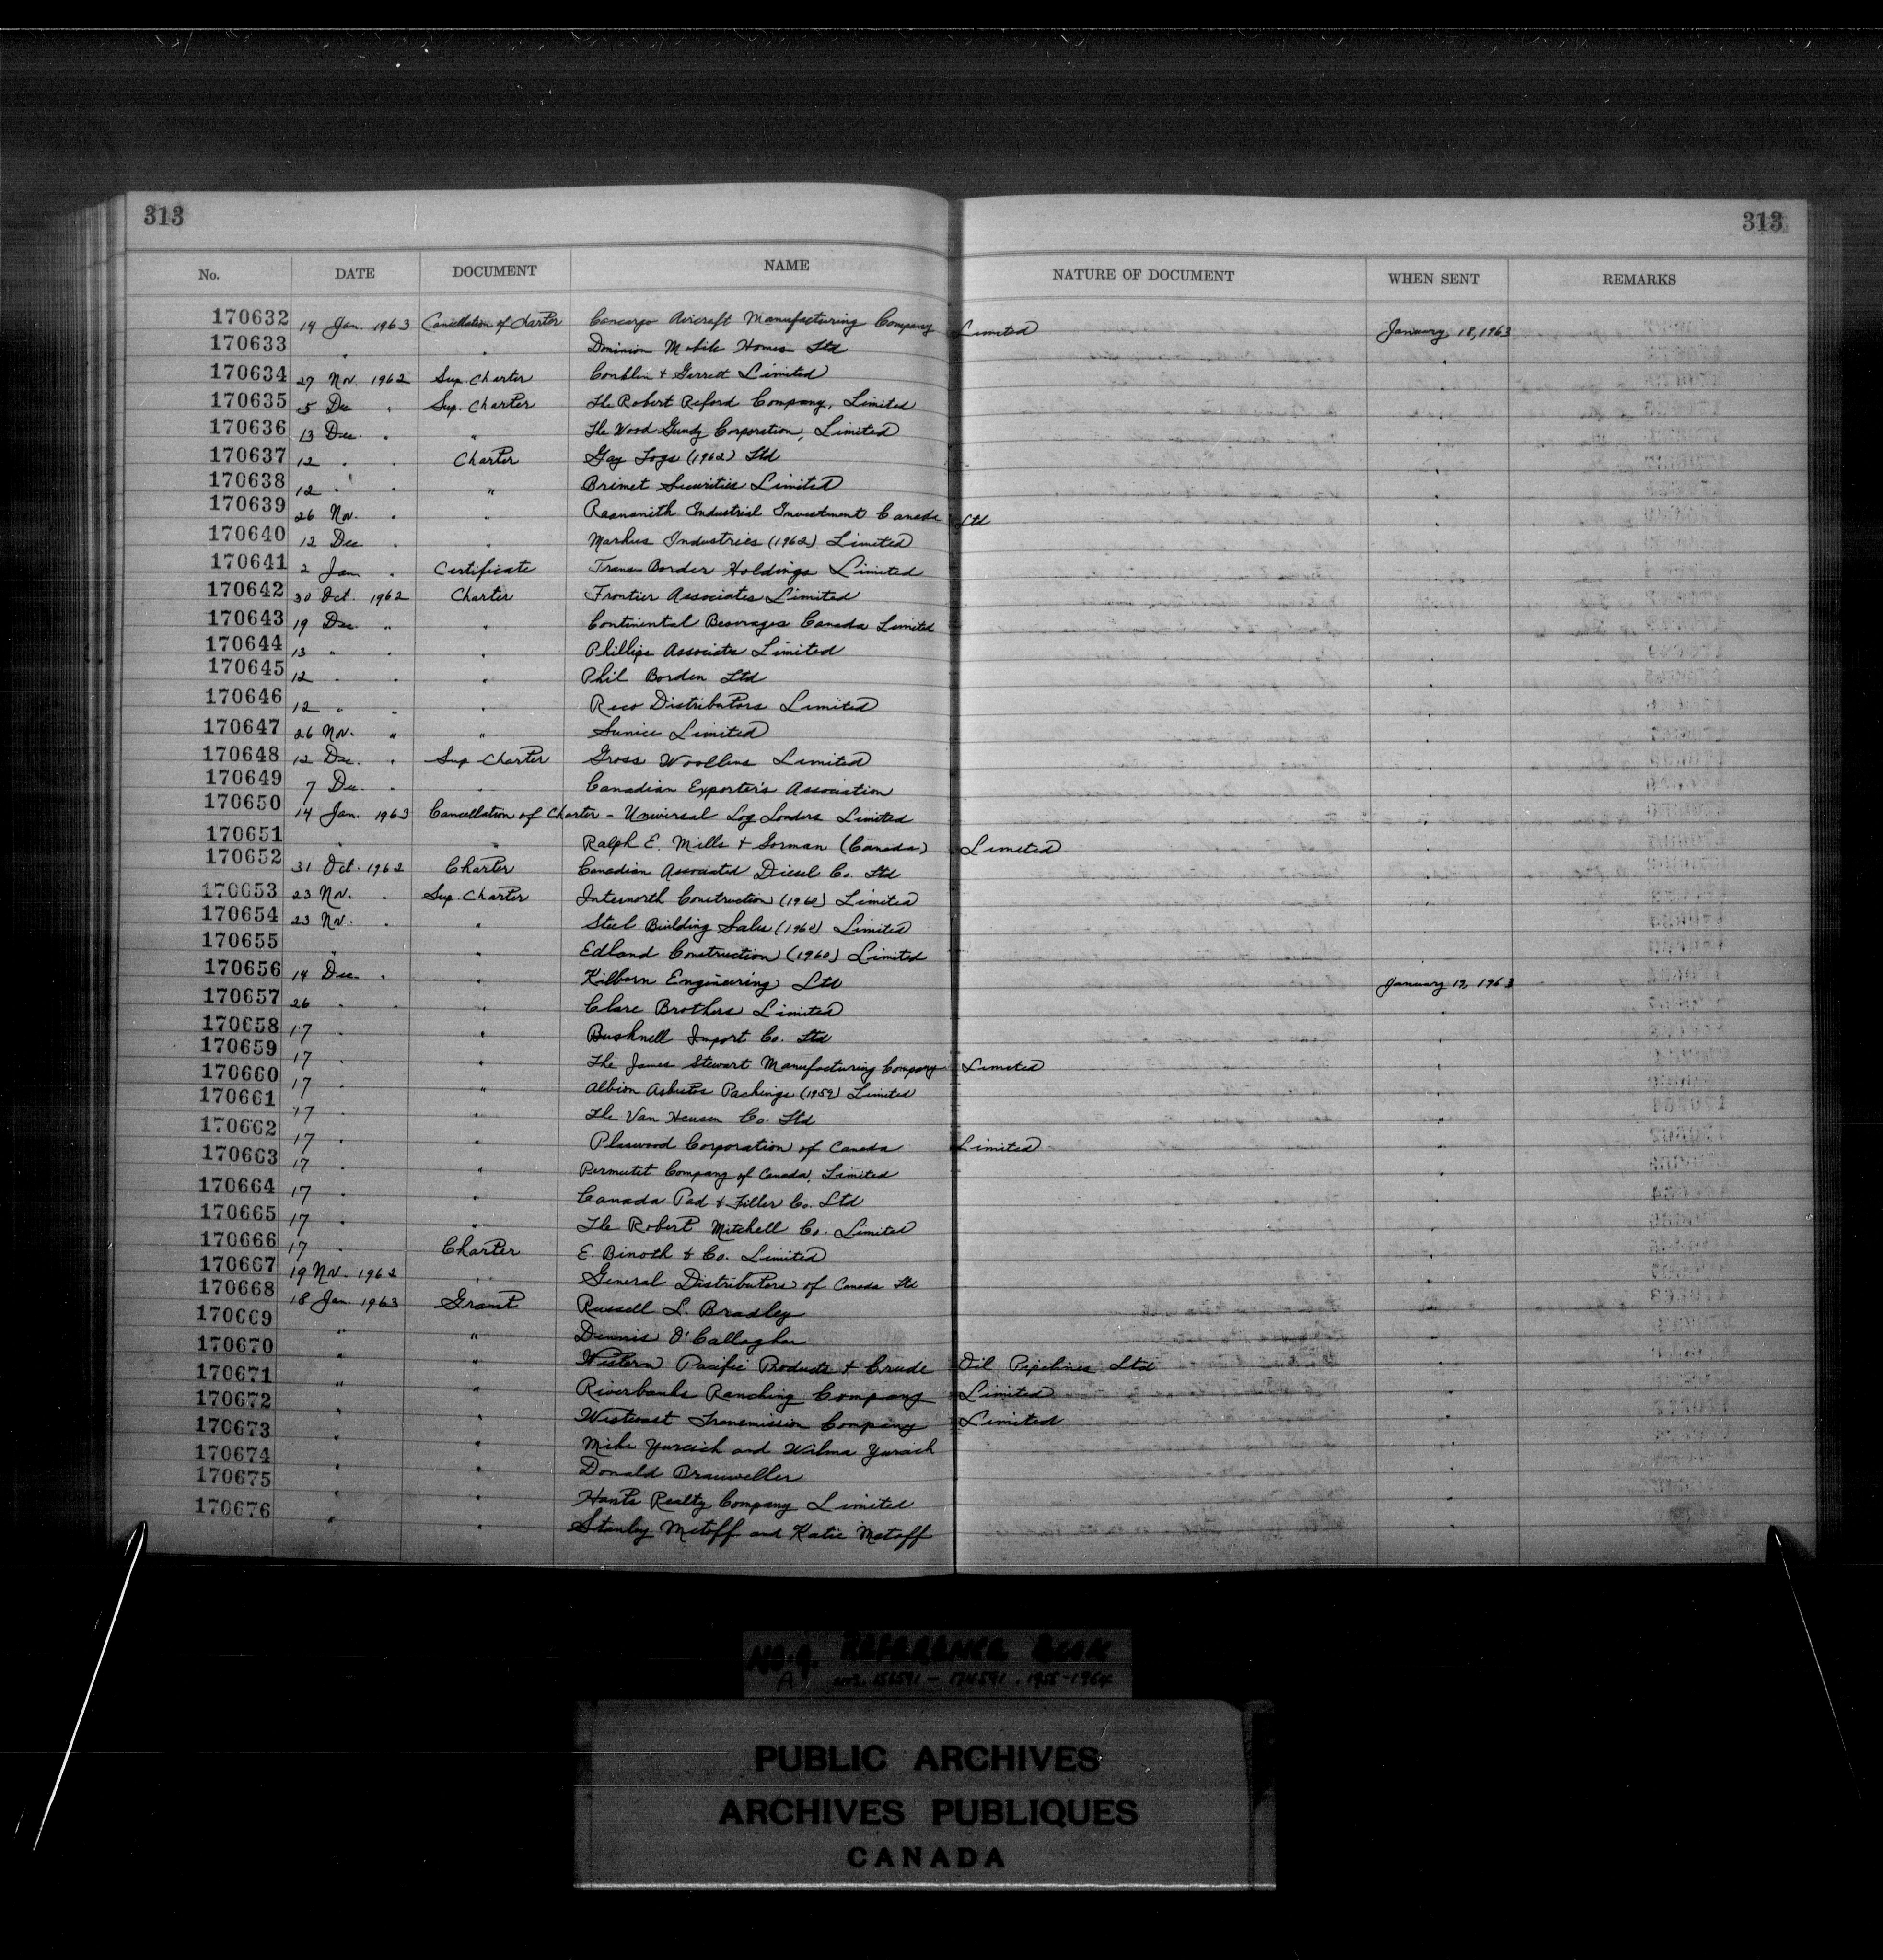 313 313
No. DATE DOCUMENT NAME NATURE OF DOCUMENT WHEN SENT REMARKS
170632 14 Jan. 1963 Cancellation of Charter Cancargo Aircraft Manufacturing Company Limited January 18, 1963
170633 " " Dominion Mobile Homes Ltd "
170634 27 Nov. 1962 Sup. Charter Conklin & Garrett Limited "
170635 5 Dec " Sup. Charter The Robert Reford Company, Limited "
170636 13 Dec. " " The Wood Gundy Corporation, Limited "
170637 12 " " Charter Gay Togs (1962) Ltd "
170638 12 " " " Brimet Securities Limited "
170639 26 Nov. " " Industrial Investment Canada Ltd "
170640 12 Dec. " " Markus Industries (1962) Limited "
170641 2 Jan " Certificate Trans Border Holdings Limited "
170642 30 Oct. 1962 Charter Frontier Associates Limited "
170643 19 Dec. " " Continental Beverages Canada Limited "
170644 13 " " " Phillips Associates Limited "
170645 12 " " " Phil Borden Ltd "
170646 12 " " " Reco Distributors Limited "
170647 26 Nov. " " Sunice Limited "
170648 12 Dec. " Sup Charter Gross Woollens Limited "
170649 7 Dec. " " Canadian Exporter's Association "
170650 14 Jan. 1963 Cancellation of Charter - Universal Log Loaders Limited "
170651 " " Ralph E. Mills & Gorman (Canada) Limited "
170652 31 Oct. 1962 Charter Canadian Associated Diesel Co. Ltd "
170653 23 Nov. " Sup. Charter Internorth Construction (1960) Limited "
170654 23 Nov. " " Steel Building Sales (1960) Limited "
170655 " " Edland Construction (1960) Limited "
170656 14 Dec. " " Kilborn Engineering Ltd January 19, 1963
170657 26 " " " Clare Brothers Limited "
170658 17 " " Bushnell Import Co. Ltd "
170659 17 " " The James Stewart Manufacturing Company Limited "
170660 17 " " Albion Asbestos Packings (1959) Limited "
170661 17 " " The Van Heusen Co. Ltd "
170662 17 " " Plaswood Corporation of Canada Limited "
170663 17 " " Permutit Company of Canada, Limited "
170664 17 " " Canada Pad & Filler Co. Ltd "
170665 17 " " The Robert Mitchell Co. Limited "
170666 17 " Charter E. Binoth & Co. Limited "
170667 19 Nov. 1962 " General Distributors of Canada Ltd "
170668 18 Jan. 1963 Grant Russell L. Bradley "
170669 " " Dennis O'Callaghan "
170670 " " Western Pacific Products & Crude Oil Pipelines Ltd "
170671 " " Riverbanks Ranching Company Limited "
170672 " " Westcoast Transmission Company Limited "
170673 " " Mike Yurcich and Wilma Yurcich "
170674 " " Donald Brauweiler "
170675 " " Hants Realty Company Limited "
170676 " " Stanley Metoff and Katie Metoff "
NO. 9. REFERENCE BOOK
A NOS. 156591 - 174591. 1955-1964
PUBLIC ARCHIVES
ARCHIVES PUBLIQUES
CANADA